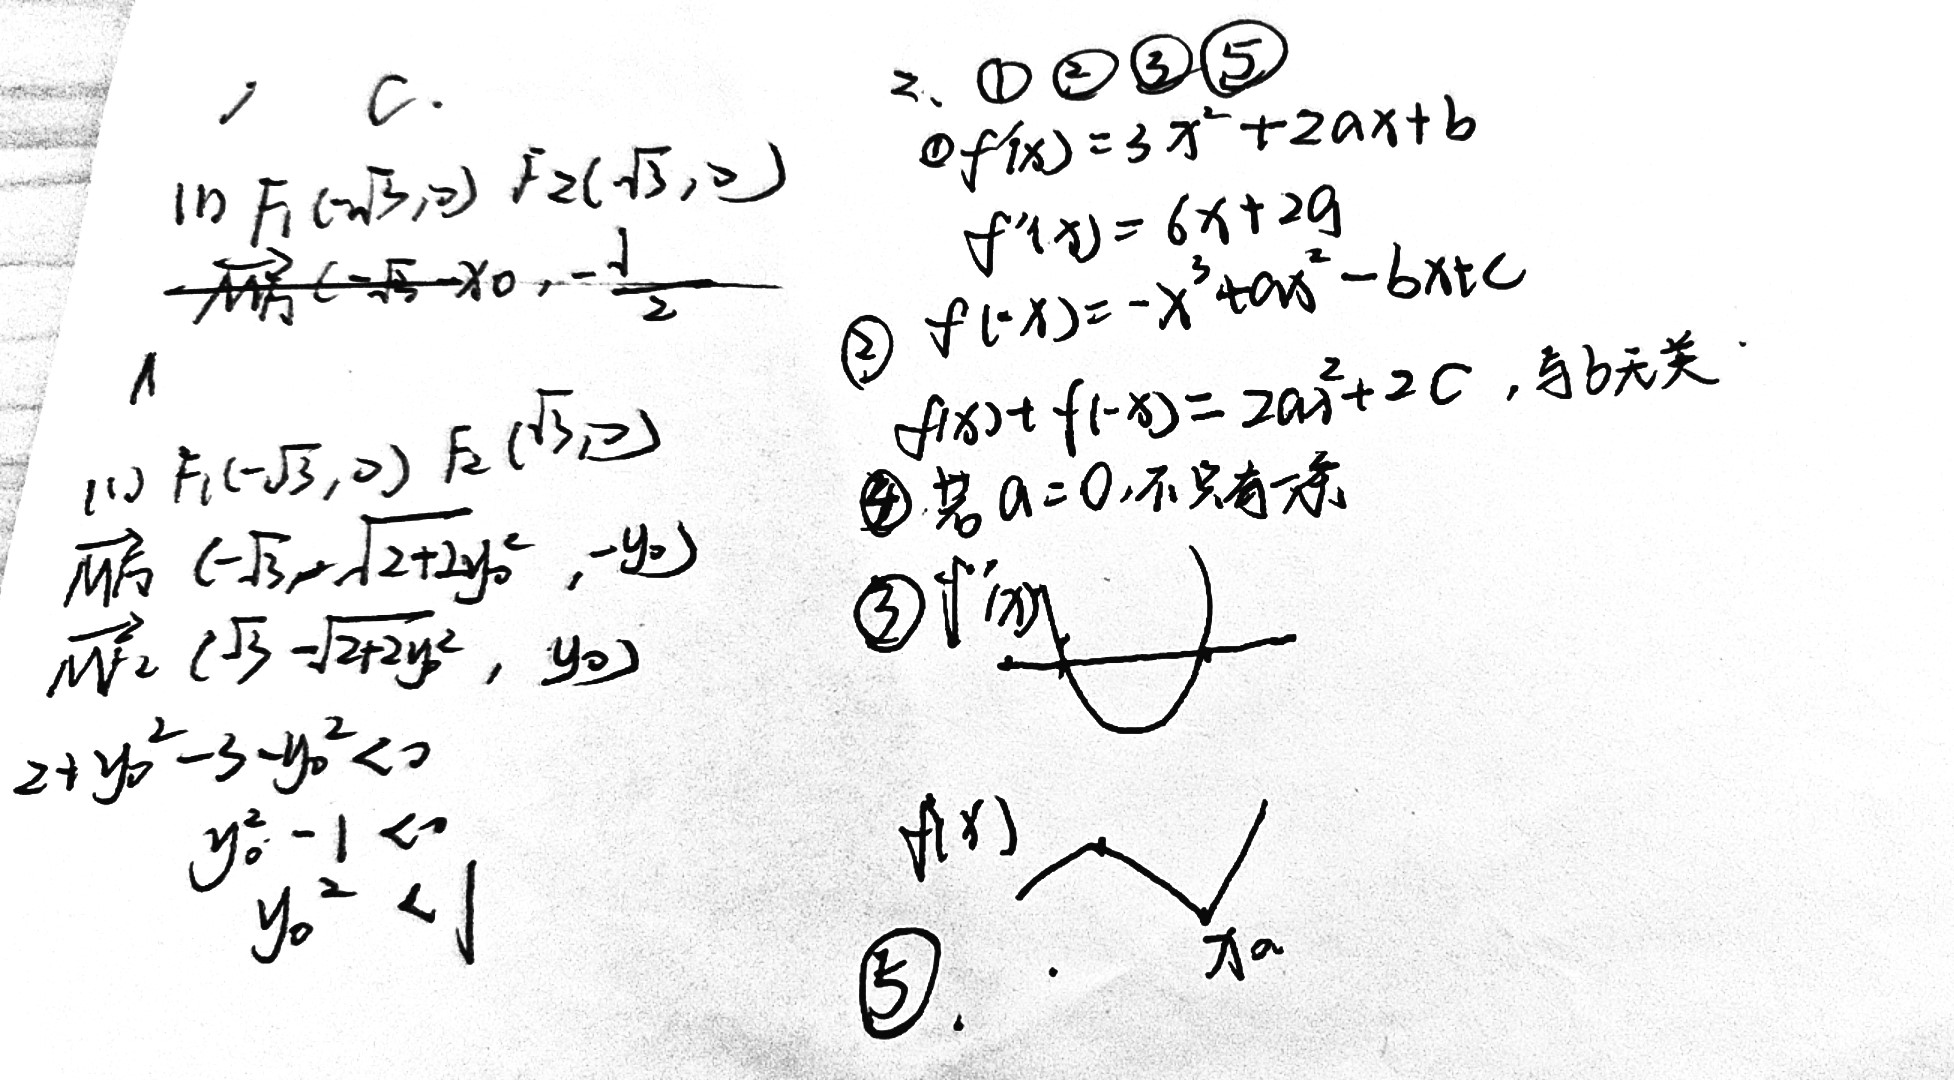 1 C.
(1) F₁(-√3,0) F2(√3,0)
MF₁ (-√3-x0, -1/2
1
(1) F₁(-√3,0) F₂(√3,0)
MF₁ (-√3-√2+2y₀², -y₀)
MF2 (√3-√2+2y₀², y₀)
2+y₀²-3-y₀²<0
y₀²-1<0
y₀²<1
2、①②③⑤
①f'(x)=3x²+2ax+b
f''(x)=6x+2a
② f(-x)=-x³+ax²-bx+c
f(x)+f(-x)=2ax²+2C,与b无关.
④若a=0,不只有一条
③f'(x)
f(x)
xa
⑤.